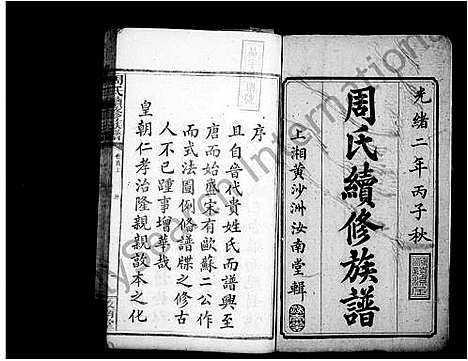 光緒二年丙子秋
周氏續修族譜
上湘黄沙洲汝南堂輯
序
且自晉代貴姓氏而譜興至
唐而始盛宋有歐蘇二公作
而式法圖例修譜牒之修古
人不已踵事增華哉
皇朝仁孝治隆親親敦本之化
周氏續修族譜